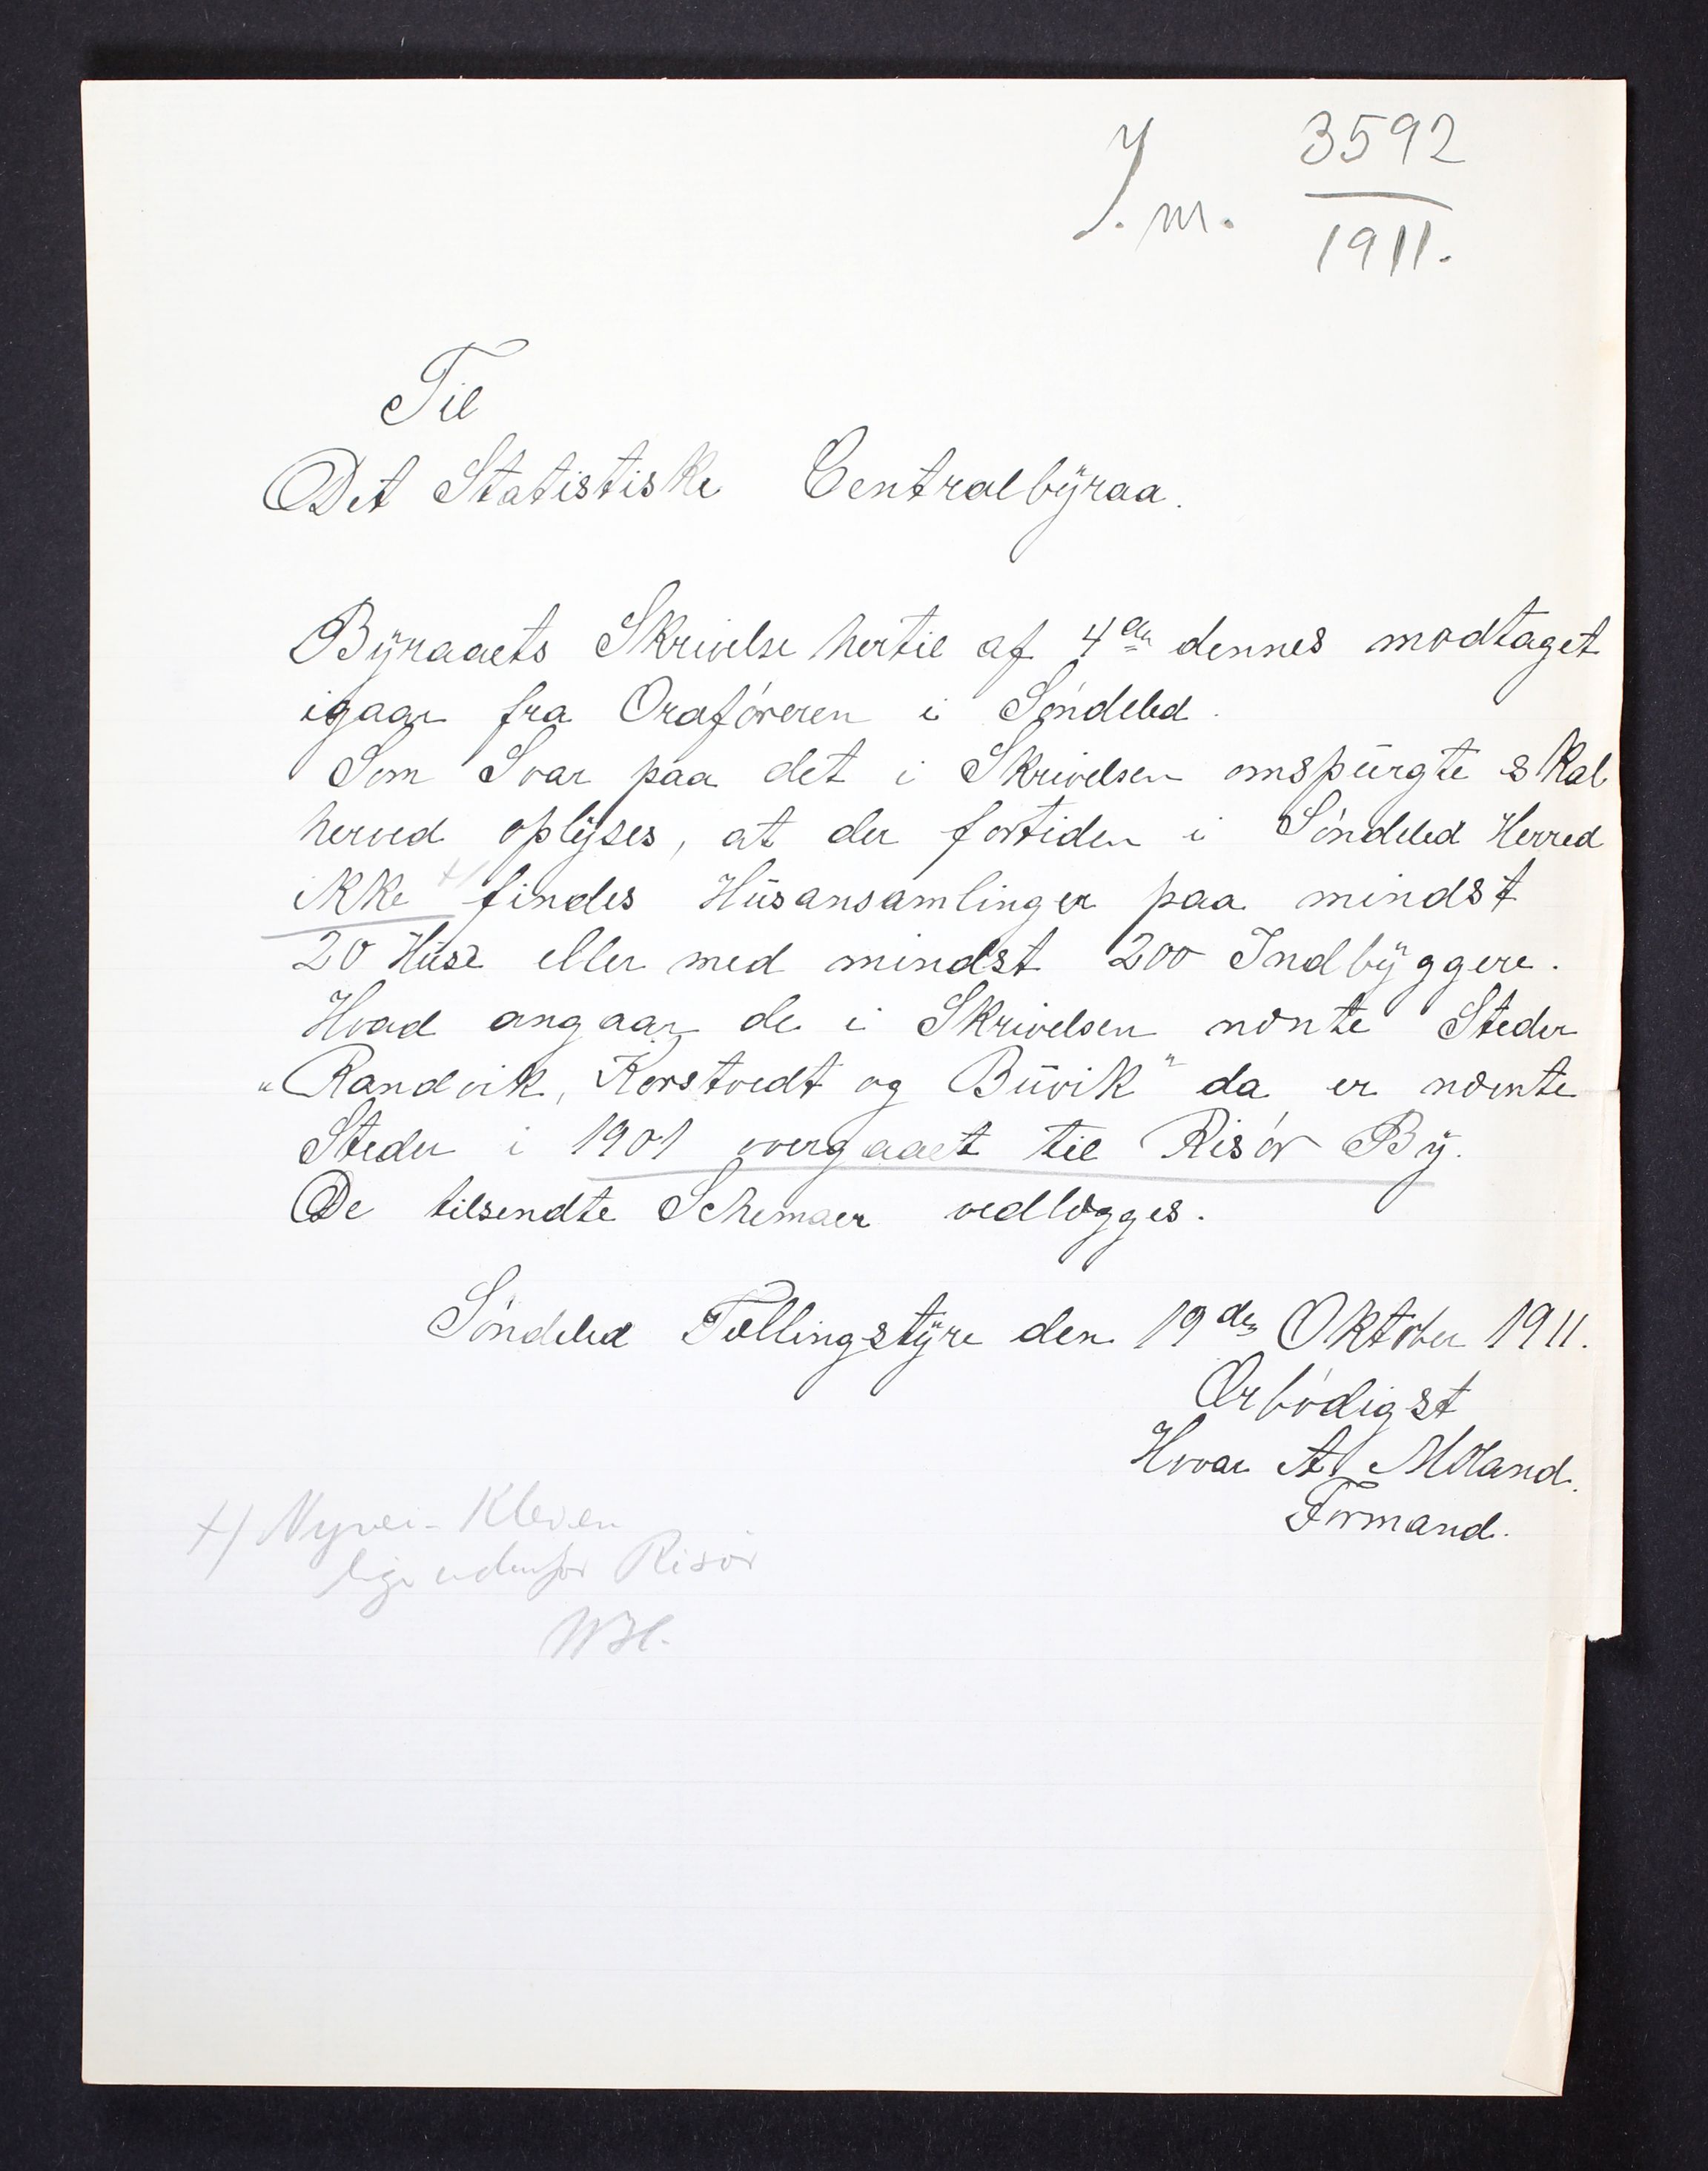 J. nr. 3592
1911.
Til
Det Statistiske Centralbyraa.
Byraaets Skrivelse hertil af 4de dennes modtaget
igaar fra Ordføreren i Søndeled.
Som Svar paa det i Skrivelsen omspurgte skal
herved oplyses, at der fortiden i Søndeled Herred
ikke +) findes Husansamlinger paa mindst
20 Huse eller med mindst 200 Indbyggere.
Hvad angaar de i Skrivelsen nævnte Steder
„Randvik, Korstvedt og Buvik" da er nævnte
Steder i 1901 overgaaet til Risør By.
De tilsendte Schemaer vedlægges.
Søndeled Tællingstyre den 19de Oktober 1911.
Ærbødigst
Hvoar A. Moland.
Formand.
+) Nyvei-Kleven
lige udenfor Risør